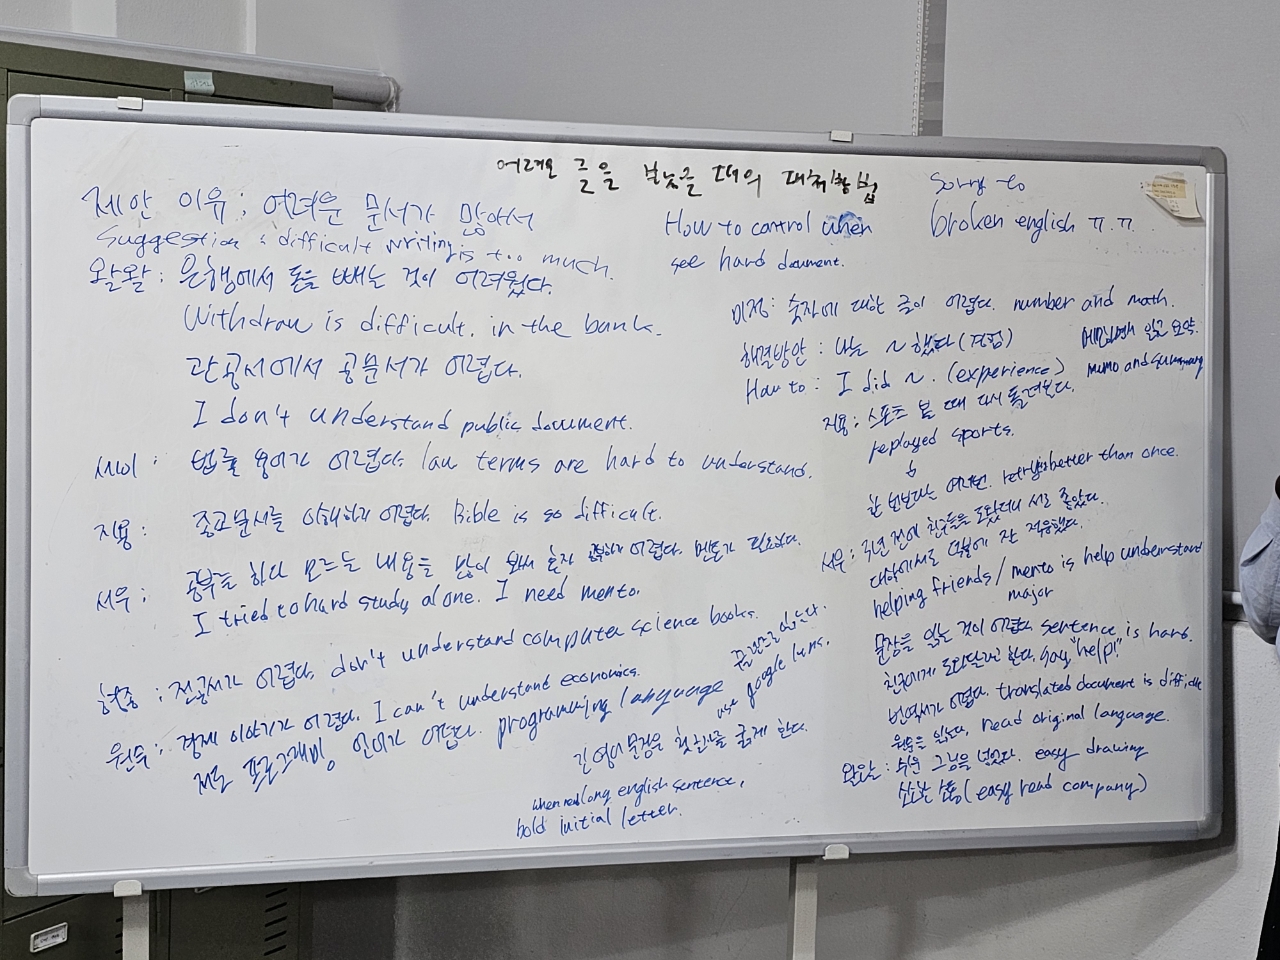 어려운 글을 봤을 때의 대처방법
How to control when
see hard document.
sorry to
broken english ㅠ.ㅠ
제안 이유 : 어려운 문서가 많아서
suggestion : difficult writing is too much.
왈왈 : 은행에서 돈을 빼는 것이 어려웠다.
Withdraw is difficult. in the bank.
관공서에서 공문서가 어렵다.
I don't understand public document.
법률 용어가 어렵다. law terms are hard to understand.
지용 : 종교문서를 이해하기 어렵다. Bible is so difficult.
서우 : 공부를 하다 모르는 내용들 많이 혼자 공부하기 어렵다. 멘토가 필요하다.
I tried to hard study alone. I need mento.
현종 : 전공서가 어렵다. don't understand computer science books.
원수 : 경제 이야기가 어렵다. I can't understand economics.
프로그래밍 언어가 어렵다. programming language
use google lens.
긴 영어문장은 첫 글자를 굵게 한다.
when read long english sentence,
bold initial letter.
미정 : 숫자에 대한 글이 어렵다. number and math.
해결방안 : 나는 ~ 했다 (경험)
How to : I did ~. (experience)
읽고 요약.
memo and summary
지용 : 스포츠 볼 때 다시 돌려본다.
replayed sports.
한 번보다는 여러번. retry is better than once.
서우 : 친구들을 도왔더니 서로 좋았다.
대학에서도 덕분에 잘 적응했다.
helping friends / mento is help understand
major
문장을 읽는 것이 어렵다. sentence is hard.
친구에게 도와달라고 한다. say "help!"
번역서가 어렵다. translated document is difficult
원문을 읽는다. read original language.
왈왈 : 쉬운 그림을 넣었다. easy drawing
소소한 소통 (easy read company)